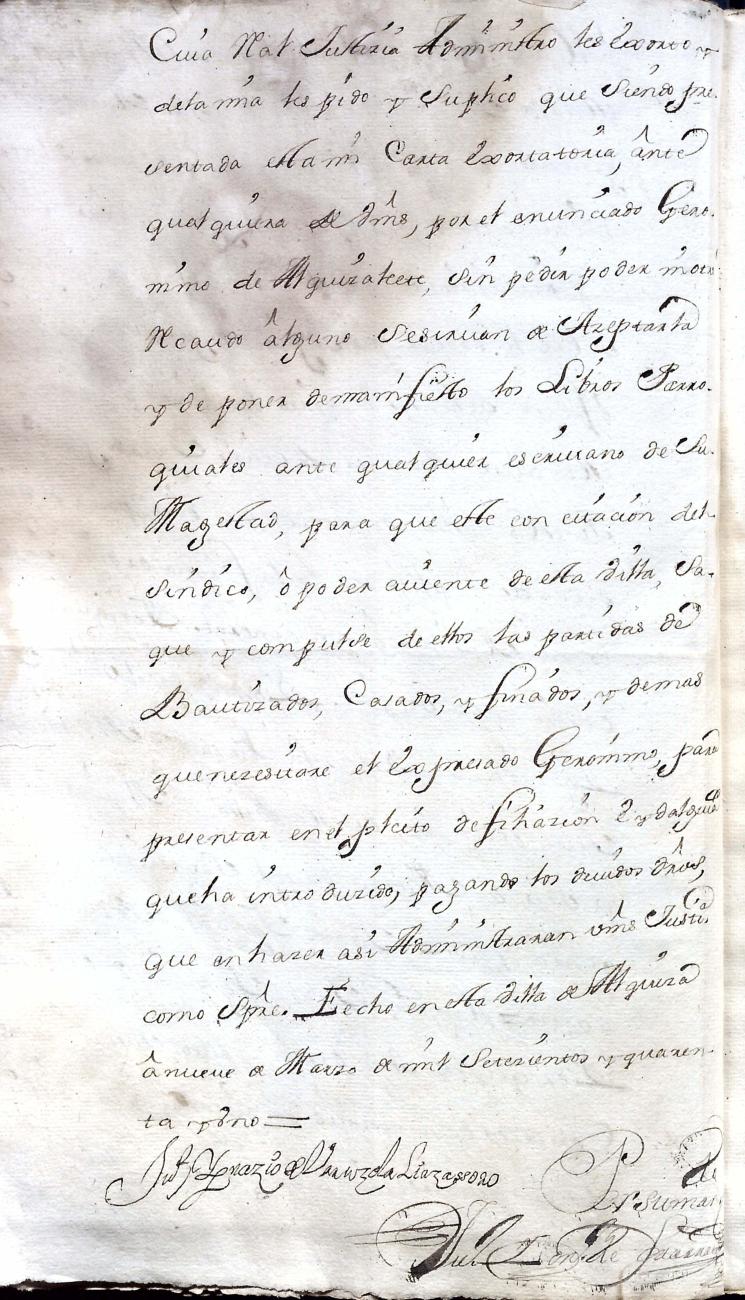 Cuia Real Justicia Administro les exorto y
de la mia les pido y suplico que siendo pre-
sentada esta mi Carta exortattoria, ânte
qualquiera de Vms, por el enunciado Gero-
nimo de Alguizalete, sin pedir poder ni otro
Recaudo âlguno se sirvan de Azeptarla
y de poner de manifiesto los Libros Parro-
quiales ante qualquier escrivano de Su
Magestad, para que este con citacion del
sindico, ô poder aviente de esta Villa, Sa-
que y compulse de ellos las partidas de
Bautizados, Casados, y finados, y demas
que nezesitare el expresado Geronimo, para
presentar en el pleito de filiazion e ydalguia
que ha introduzido, pagando los devidos dros,
que en hazer asi Administraran vms Justiª
como Spre. Fecho en esta Villa de Alguiza
â nueve de Marzo de mil setezientos y quaren-
ta y uno =
Ygnazio de